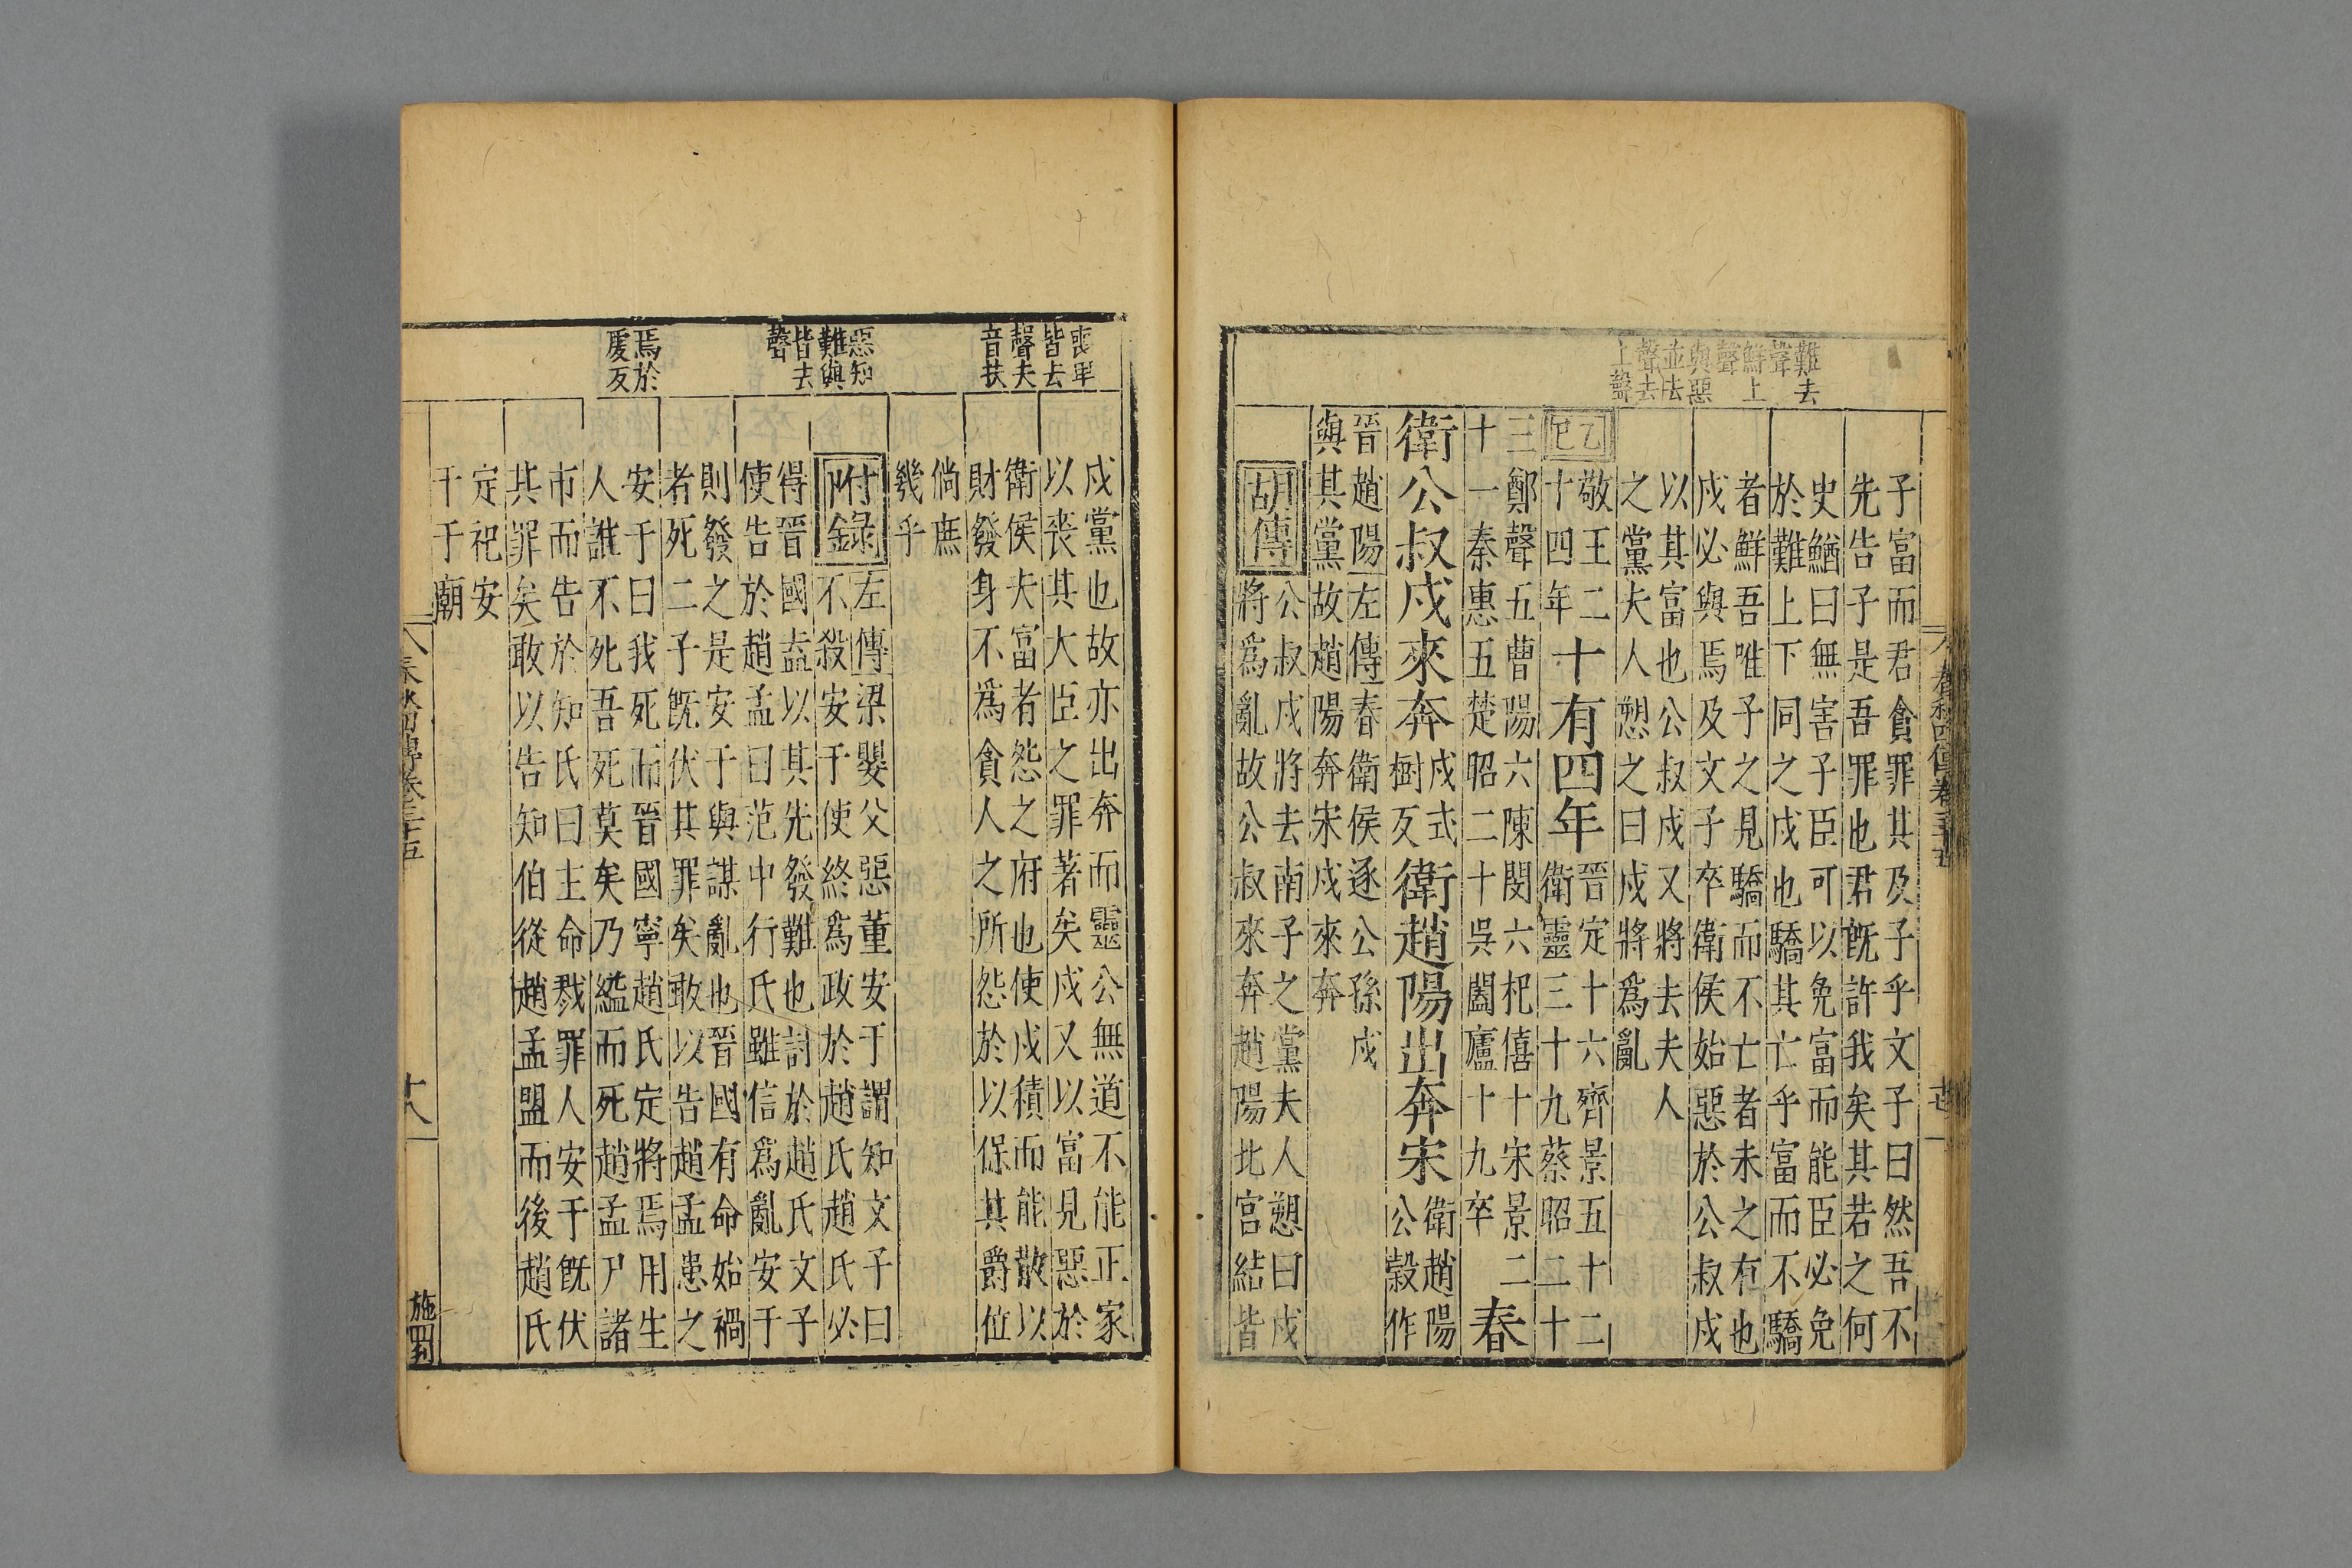 難去
聲
鮮上
聲
與惡
並去
聲去
上聲
子富而君貪罪其及子乎文子曰然吾不
先告子是吾罪也君旣許我矣其若之何
史鰌曰無害子臣可以免富而能臣必免
於難上下同之戍也驕其亡乎富而不驕
者鮮吾唯子之見驕而不亡者未之有也
戍必與焉及文子卒衛侯始惡於公叔戍
以其富也公叔戍又將去夫人
之黨夫人愬之曰戍將爲亂
乙巳
敬王二
十四年
十有四年
晉定十六齊景五十二
衛靈三十九蔡昭二十
三鄭聲五曹陽六陳閔六杞僖十宋景二
十一秦惠五楚昭二十吳闔廬十九卒
春
衛公叔戍來奔
戍式
樹反
衛趙陽出奔宋
衛趙陽
公穀作
晉趙陽左傳春衛侯逐公孫戍
與其黨故趙陽奔宋戍來奔
胡傳
公叔戍將去南子之黨夫人愬曰戍
將爲亂故公叔來奔趙陽北宮結皆
喪畢
皆去
聲夫
音扶
惡知
難與
皆去
聲
焉於
虔反
戍黨也故亦出奔而靈公無道不能正家
以喪其大臣之罪著矣戍又以富見惡於
衛侯夫富者怨之府也使戍積而能散以
財發身不爲貪人之所怨於以保其爵位
倘庶
幾乎
附錄
左傳梁嬰父惡董安于謂知文子曰
不殺安于使終爲政於趙氏趙氏必
得晉國盍以其先發難也討於趙氏文子
使告於趙孟曰范中行氏雖信爲亂安于
則發之是安于與謀亂也晉國有命始禍
者死二子旣伏其罪矣敢以告趙孟患之
安于曰我死而晉國寧趙氏定將焉用生
人誰不死吾死莫矣乃縊而死趙孟尸諸
市而告於知氏曰主命戮罪人安于旣伏
其罪矣敢以告知伯從趙孟盟而後趙氏
定祀安
于于廟
春秋四傳卷三十五
十八
施罰